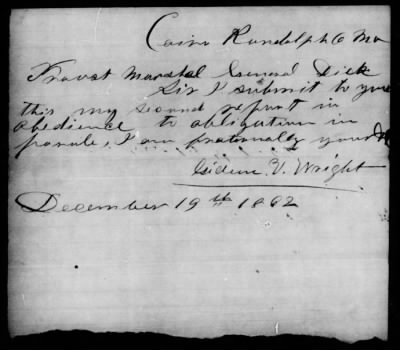 Cairo Randolph Co Mo
Provost Marshal General Dick
Sir I submit to you
this my second report in
obedience to obligation in
parole, I am fraternally yours
Gideon V. Wright
December 19th 1862